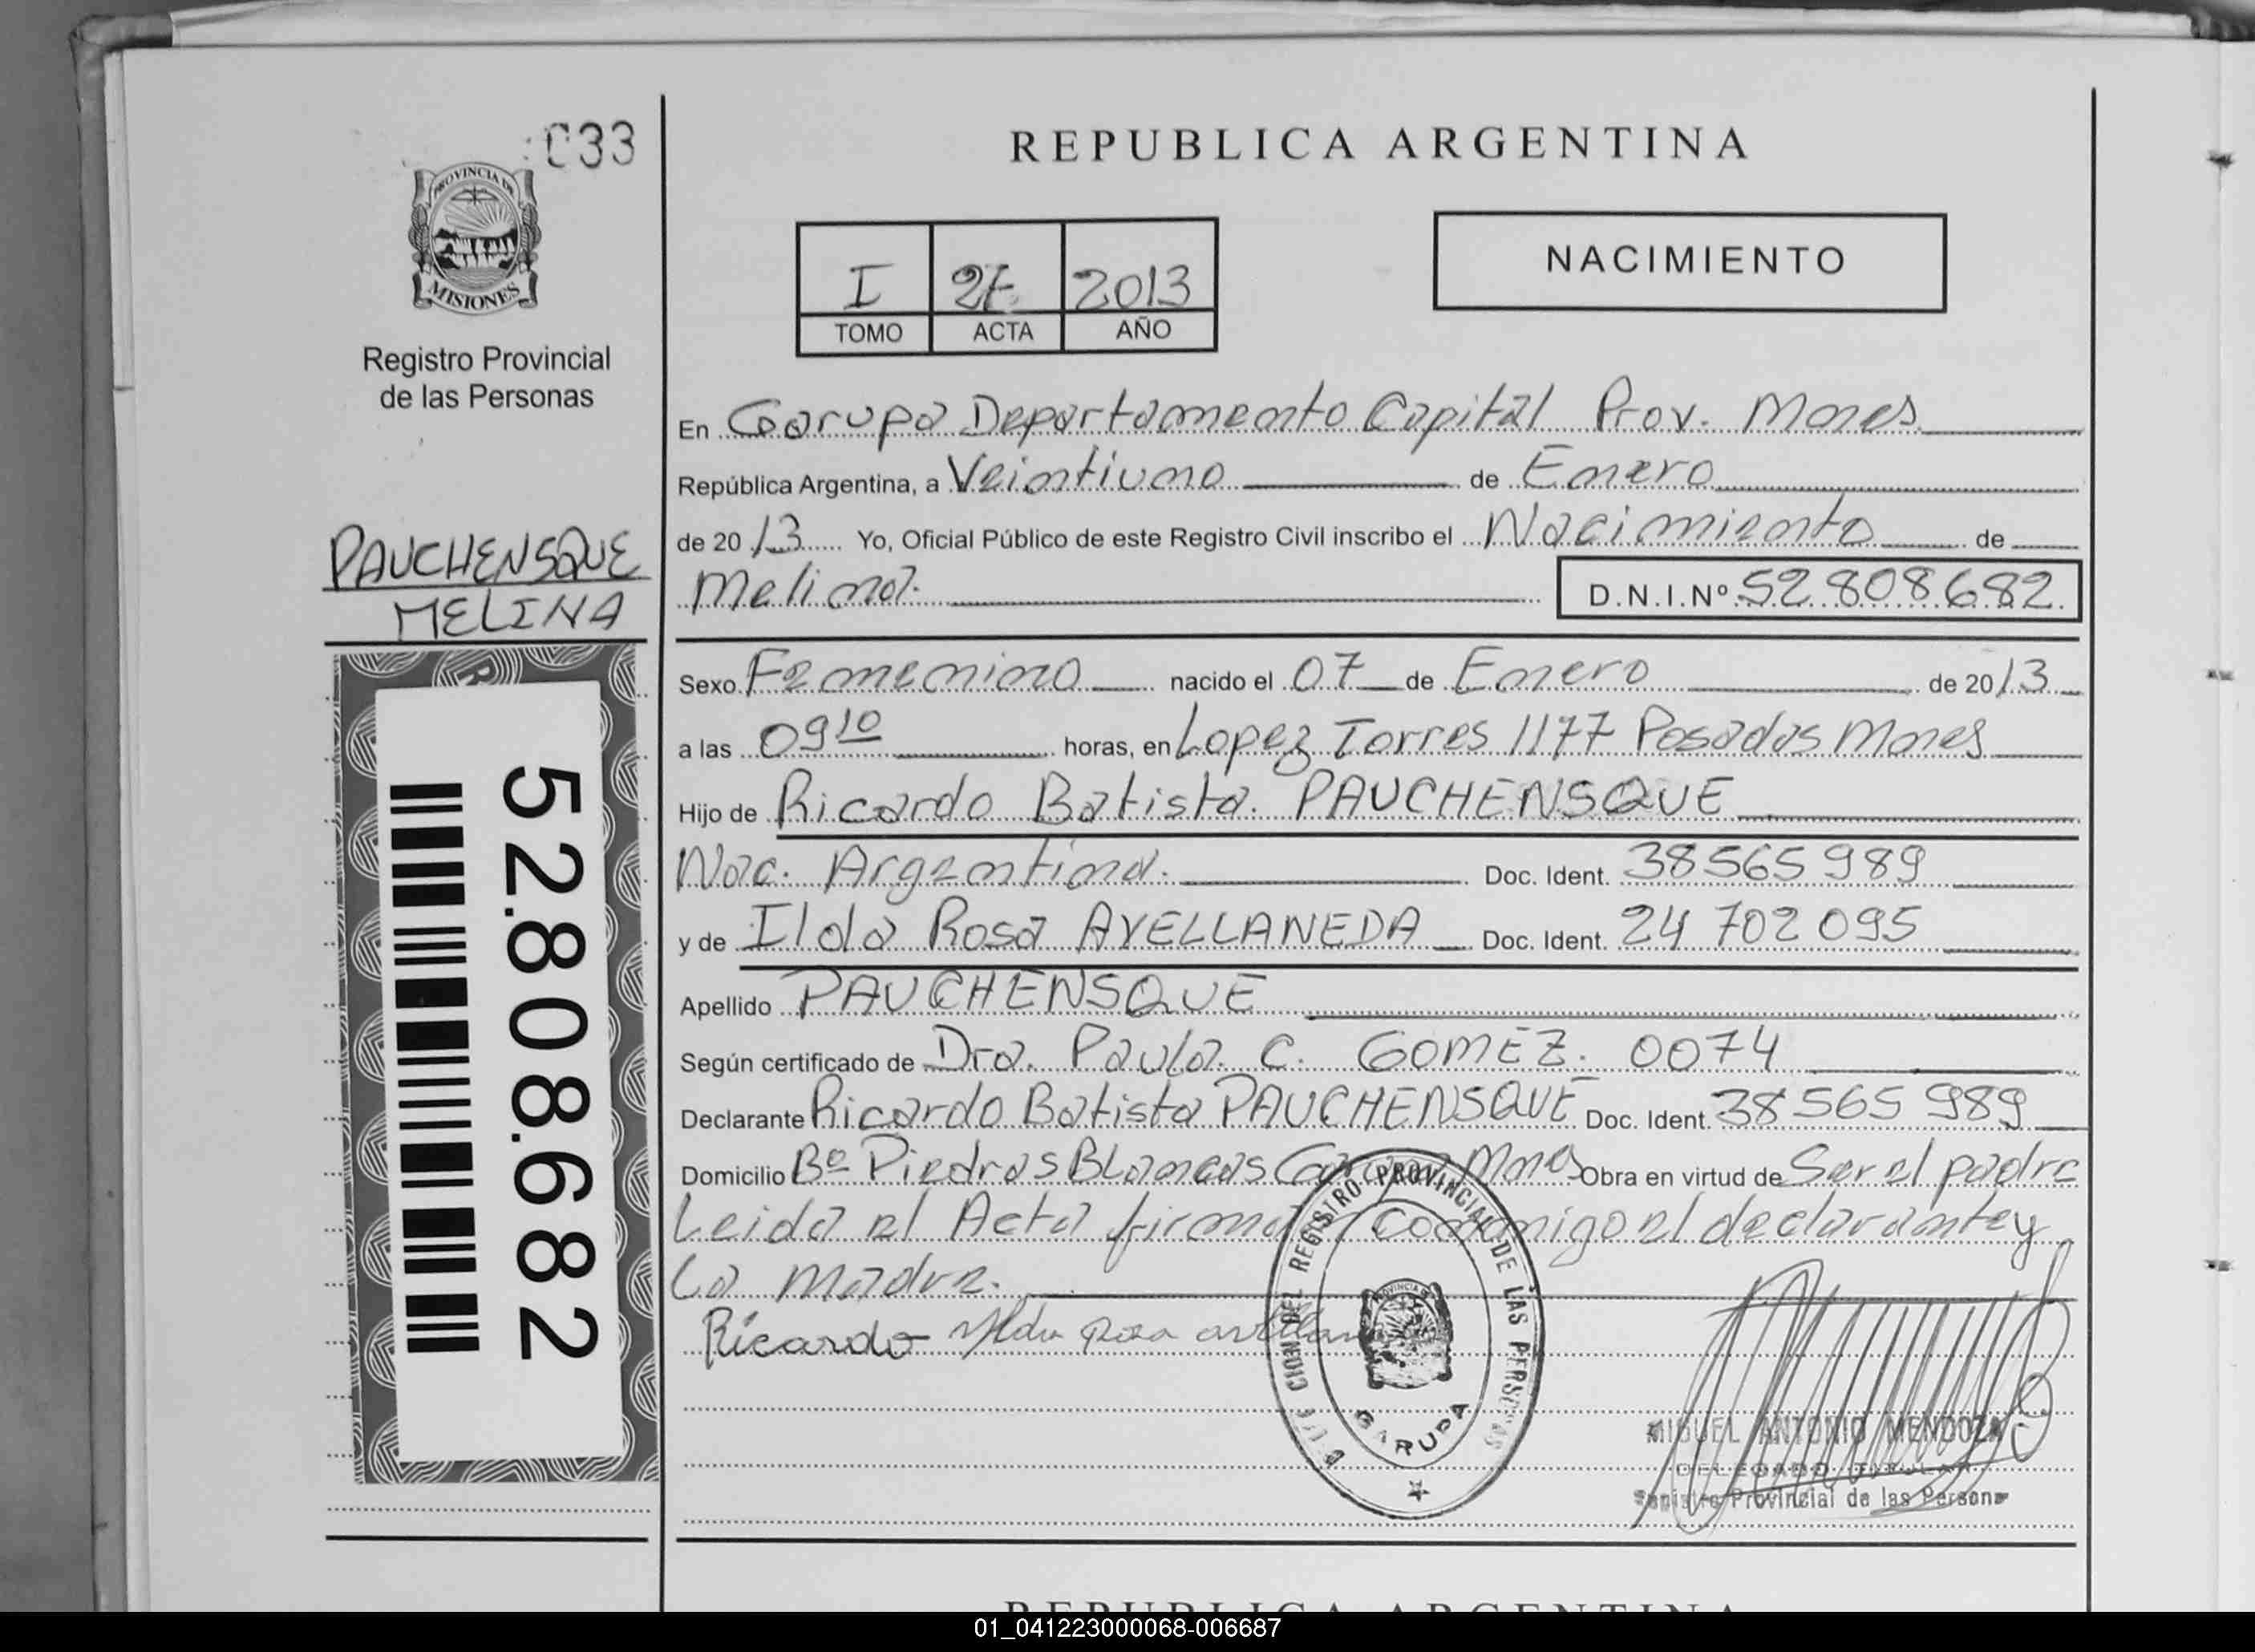 033
PROVINCIA DE
MISIONES
Registro Provincial
de las Personas
PAUCHENSQUE
MELINA
52.808.682
REPUBLICA ARGENTINA
I 27 2013
TOMO ACTA AÑO
NACIMIENTO
En Garupa Departamento Capital Prov. Mnes
República Argentina, a Veintiuno de Enero
de 2013 Yo, Oficial Público de este Registro Civil inscribo el Nacimiento de
Melina. D.N.I.Nº 52 808 682
Sexo Femenino nacido el 07 de Enero de 2013
a las 09 10 horas, en Lopez Torres 1177 Posadas Mnes
Hijo de Ricardo Batista PAUCHENSQUE
Nac. Argentina. Doc. Ident. 38 565 989
y de Ilda Rosa AVELLANEDA Doc. Ident. 24 702 095
Apellido PAUCHENSQUE
Según certificado de Dra. Paula C. GOMEZ. 0074
Declarante Ricardo Batista PAUCHENSQUE Doc. Ident. 38 565 989
Domicilio Bº Piedras Blancas Garupa Mnes Obra en virtud de Ser el padre
Leida el Acta firman conmigo el declarante y
La madre.
Ricardo Ilda Rosa
REGISTRO PROVINCIAL DE LAS PERSONAS
GARUPA
MIGUEL ANTONIO MENDOZA
DELEGADO TITULAR
Registro Provincial de las Persona
REPUBLICA ARGENTINA
01_041223000068-006687